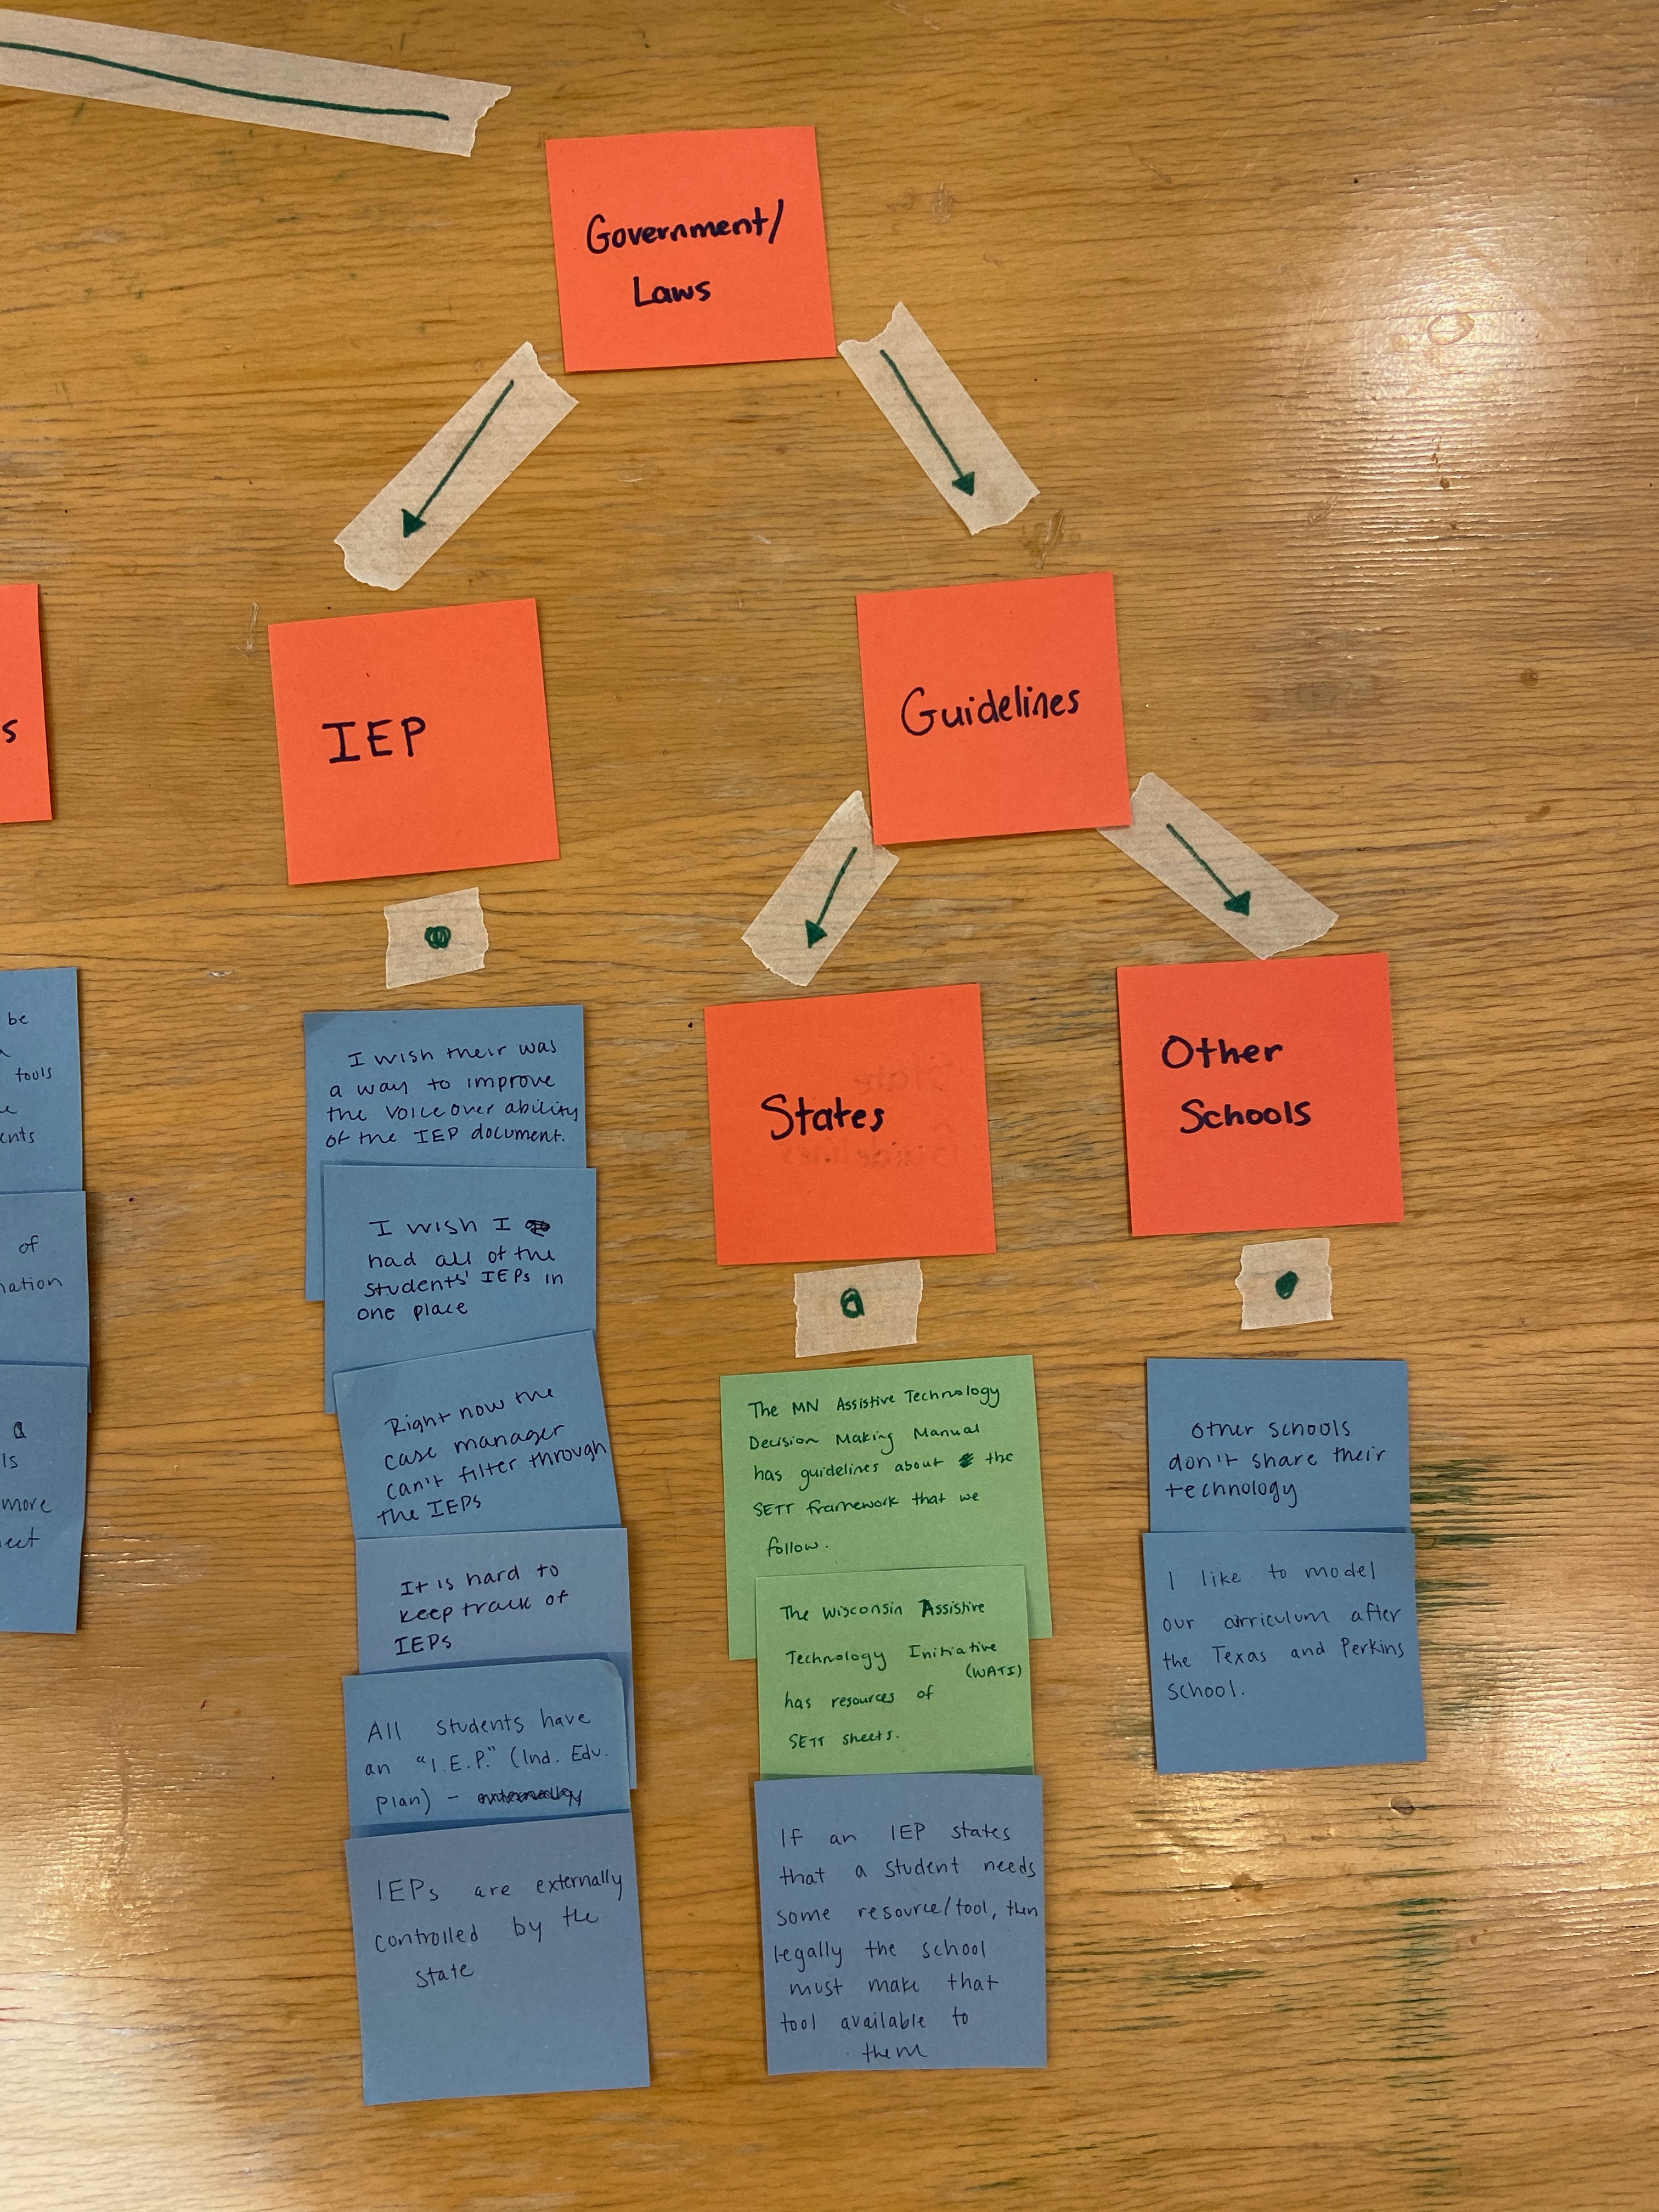 Government/
Laws
IEP
Guidelines
States
Other
Schools
s
be
tools
ents
of
nation
a
ls
more
I wish their was
a way to improve
the voiceover ability
of the IEP document.
I wish I
had all of the
students' IEPs in
one place
Right now the
case manager
can't filter through
the IEPs
It is hard to
keep track of
IEPs
All students have
an "I.E.P." (Ind. Edu.
plan) -
IEPs are externally
controlled by the
state
The MN Assistive Technology
Decision Making Manual
has guidelines about the
SETT framework that we
follow.
The Wisconsin Assistive
Technology Initiative
(WATI)
has resources of
SETT sheets.
If an IEP states
that a student needs
some resource/tool, then
legally the school
must make that
tool available to
them
other schools
don't share their
technology
I like to model
our curriculum after
the Texas and Perkins
school.